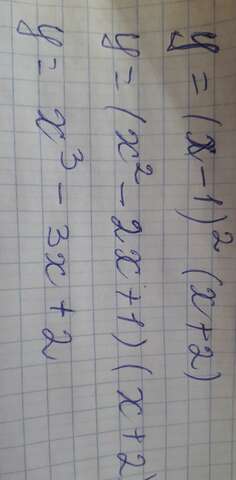 y = (x-1)² (x+2)
y = (x² - 2x + 1) (x + 2)
y = x³ - 3x + 2